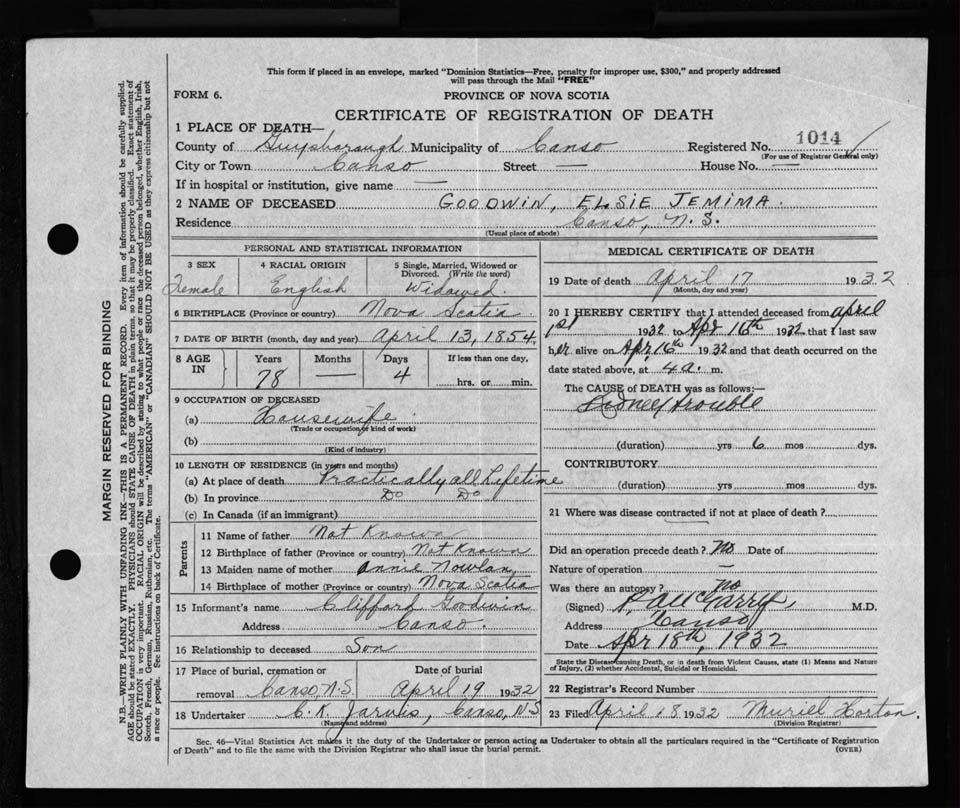 This form if placed in an envelope, marked "Dominion Statistics—Free, penalty for improper use, $300," and properly addressed
will pass through the Mail "FREE"
FORM 6.
PROVINCE OF NOVA SCOTIA
CERTIFICATE OF REGISTRATION OF DEATH
1 PLACE OF DEATH—
1014
County of Guysborough Municipality of Canso Registered No.
(For use of Registrar General only)
City or Town Canso Street — House No. —
If in hospital or institution, give name —
2 NAME OF DECEASED GOODWIN, ELSIE JEMIMA.
Residence Canso, N.S.
(Usual place of abode)
PERSONAL AND STATISTICAL INFORMATION
3 SEX 4 RACIAL ORIGIN 5 Single, Married, Widowed or
Divorced. (Write the word)
Female English Widowed.
6 BIRTHPLACE (Province or country) Nova Scotia
7 DATE OF BIRTH (month, day and year) April 13, 1854.
8 AGE IN Years Months Days If less than one day,
78 — 4 hrs. or min.
9 OCCUPATION OF DECEASED
(a) Housewife.
(Trade or occupation or kind of work)
(b)
(Kind of industry)
10 LENGTH OF RESIDENCE (in years and months)
(a) At place of death Practically all Lifetime
(b) In province Do Do
(c) In Canada (if an immigrant)
Parents
11 Name of father Not Known
12 Birthplace of father (Province or country) Not Known
13 Maiden name of mother Annie Nowlan
14 Birthplace of mother (Province or country) Nova Scotia
15 Informant's name Clifford Goodwin
Address Canso.
16 Relationship to deceased Son
17 Place of burial, cremation or Date of burial
removal Canso, N.S. April 19 1932
18 Undertaker C. K. Jarvis, Canso, N.S
(Name and address)
MEDICAL CERTIFICATE OF DEATH
19 Date of death April 17 1932
(Month, day and year)
20 I HEREBY CERTIFY that I attended deceased from April
1st 1932 to Apr 16th 1932 that I last saw
her alive on Apr 16th 1932 and that death occurred on the
date stated above, at 4 a. m.
The CAUSE of DEATH was as follows:—
Kidney trouble
(duration) yrs 6 mos dys.
CONTRIBUTORY
(duration) yrs. mos. dys.
21 Where was disease contracted if not at place of death?
Did an operation precede death? No Date of
Nature of operation —
Was there an autopsy? No
(Signed) M.D.
Address Canso
Date Apr 18th, 1932
State the Disease causing Death, or in death from Violent Causes, state (1) Means and Nature
of Injury, (2) whether Accidental, Suicidal or Homicidal.
22 Registrar's Record Number
23 Filed April 18 1932 Muriel Horton.
(Division Registrar)
Sec. 46—Vital Statistics Act makes it the duty of the Undertaker or person acting as Undertaker to obtain all the particulars required in the "Certificate of Registration
of Death" and to file the same with the Division Registrar who shall issue the burial permit.
(OVER)
MARGIN RESERVED FOR BINDING
N.B.—WRITE PLAINLY WITH UNFADING INK—THIS IS A PERMANENT RECORD. Every item of information should be carefully supplied.
AGE should be stated EXACTLY. PHYSICIANS should STATE CAUSE OF DEATH in plain terms, so that it may be properly classified. Exact statement of
OCCUPATION is very important. RACIAL ORIGIN will be described by stating to what people or race the deceased person belonged, whether English, Irish,
Scotch, French, German, Russian, Ruthenian, etc. The terms "AMERICAN" or "CANADIAN" SHOULD NOT BE USED as they express citizenship but not
a race or people. See instructions on back of Certificate.